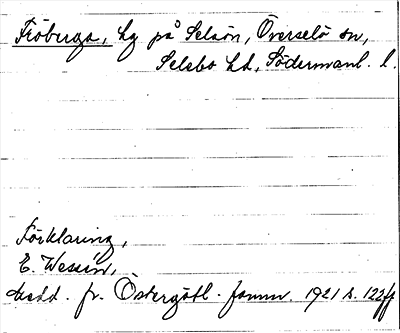 Fröberga, hg på Selaön, Överselö sn,
Selebo hd, Södermanl. l.
Förklaring,
E. Wessén,
Medd. fr. Östergötl. fornm. 1921 s. 122ff